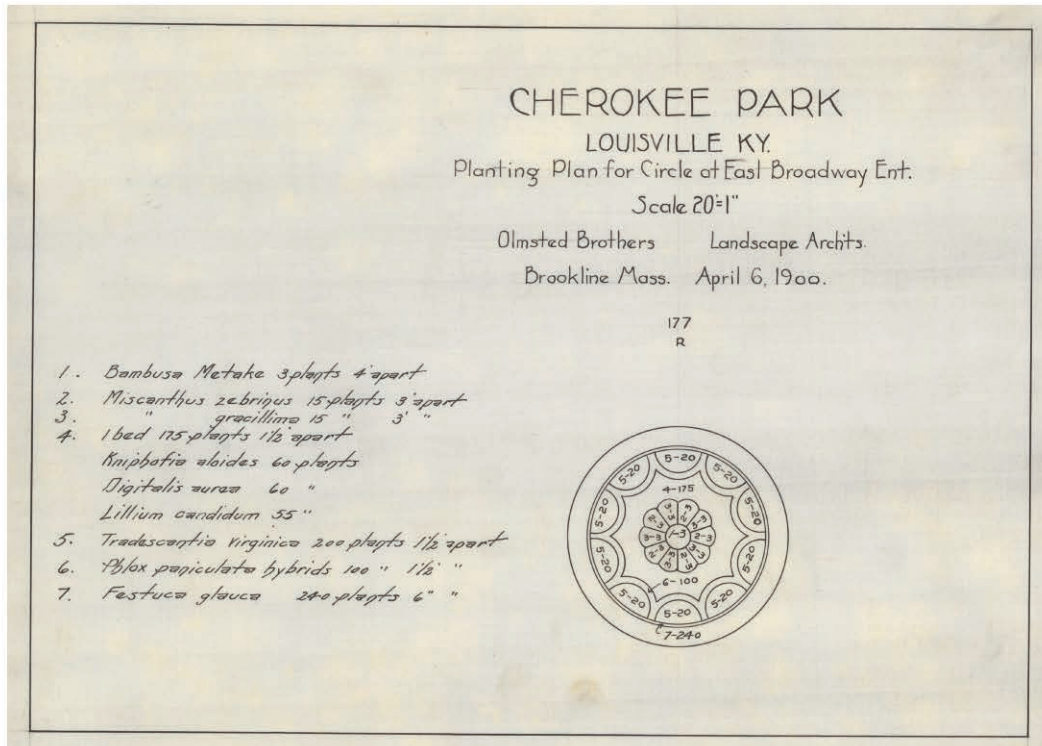 CHEROKEE PARK
LOUISVILLE KY.
Planting Plan for Circle at East Broadway Ent.
Scale 20'=1"
Olmsted Brothers Landscape Archts.
Brookline Mass. April 6, 1900.
177
R
1. Bambusa Metake 3 plants 4' apart
2. Miscanthus zebrinus 15 plants 3' apart
3. " gracillima 15 " 3' "
4. 1 bed 175 plants 1½' apart
Kniphofia aloides 60 plants
Digitalis aurea 60 "
Lillium candidum 55 "
5. Tradescantia virginica 200 plants 1½' apart
6. Phlox paniculata hybrids 100 " 1½' "
7. Festuca glauca 240 plants 6" "
5-20
5-20
5-20
4-175
5-20
5-20
2-3
3-3
2-3
3-3
3-3
1-3
2-3
2-3
3-3
2-3
3-3
5-20
5-20
6-100
5-20
5-20
5-20
7-240